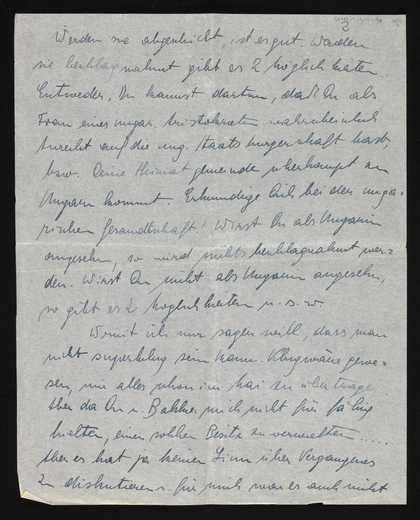 2
Werden sie abgeholt, ist es gut. Werden
sie beschlagnahmt gibt es 2 Möglichkeiten.
Entweder, Du kannst dartun, daß Du als
Frau eines ungar. Aristokraten wahrscheinlich
Anrecht auf die ung. Staatsbürgerschaft hast,
bzw. Deine Heimatgemeinde überhaupt an
Ungarn kommt. Erkundige Dich bei der unga-
rischen Gesandtschaft! Wirst Du als Ungarin
angesehn, so wird nichts beschlagnahmt wer-
den. Wirst Du nicht als Ungarin angesehn,
so gibt es 2 Möglichkeiten u. s. w.
Womit ich nur sagen will, dass man
nicht superklug sein kann. Klug wäre gewe-
sen, mir alles schon im Mai zu übertragen
Aber da Du u. mich nicht für fähig
halten, einen solchen Besitz zu verwalten .....
Aber es hat ja keinen Sinn über Vergangenes
zu diskutieren. Für mich war es auch nicht